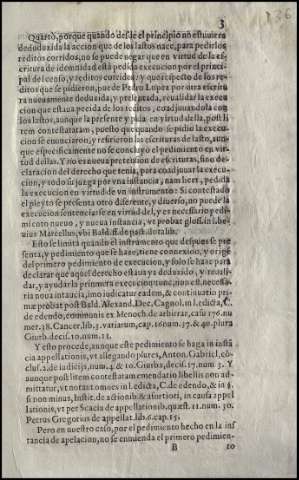 3
136
Quarto, porque quando desde el principio no estuviera
deduzida la accion que de los lastos nace, para pedir los
reditos corridos, no se puede negar que en virtud de la es-
critura de idemnidad està pedida execucion por el princi-
pal del censo, y reditos corridos y que respecto de los re-
ditos que se pidieron, pudo Pedro Lupera por otra escritu
ra nuevamente deduzida, y presentada, revalidar la execu-
cion que estaua pedida de los reditos, coadjuuandola con
los lastos, aunque la presente y pida en virtud della, post li
tem contestatam, puesto que quando se pidio la execucion
se enunciaron, y refirieron las escrituras de lasto, aun-
que especificamente no se concluyò el pedimiento en vir-
tud dellas. Y no es nueva pretension de escrituras, sino de-
claracion del derecho que tenia, para coadjuuar la execu-
cion, y todo se juzga por vna instancia, nam licet, pedida
la execucion en virtud de vn instrumento: Si contestado
el pleyto se presenta otro diferente, y diuerso, no puede la
execucion sentenciarse en virtud del, y es necessario pedi-
miento nueuo, y nueua instancia, vt probat glos. in l. ube-
uius Marcellus, vbi Bald. ff. de pact. dotalib.
Esto se limita quando el instrumento que despues se pre
senta, y pedimiento que se haze, tiene connexidad, y origen
del primero pedimiento de execucion, y solo se haze para
declarar que aquel derecho estaua ya deduzido, y reuali-
dar, y ayudar la primera execucion; tunc, non est necessa-
ria noua instancia, imo iudicatur eadem, & continuatio pri-
mæ probat post Bald. Alexand. Dec. Cagnol. in l. edicta, C.
de edendo, communis ex Menoch. de arbitrar. casu 176. nu
mer. 18. Cancer. lib. 3. variarum, cap. 16. num. 37. & 40. plura
Gurb. decisi. 10. num. 11.
Y esto procede, aunque este pedimiento se haga in insta
cia appellationis, vt allegando plures, Anton. Gabriel, cō-
clus. 2. de iudicijs, num. 4. & to. Gurba, decis. 17. num. 3. Y
aunque post litem contestatam emendatio libelli non ad-
mittatur, vt notant omnes in l. edicta, C. de edendo, & in §.
si nos minus, Instit. de actionib. & afurtiori, in causa appel
lationis, vt per Scacia de appellationib. quæst. 11. num. 30.
Petrus Gregorius de appellat. lib. 6. cap. 15.
Pero en nuestro caso, por el pedimiento hecho en la ins
tancia de apelacion, no se enmienda el primero pedimien-
B
to